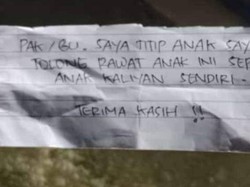 PAK/BU. SAYA TITIP ANAK SAY
TOLONG RAWAT ANAK INI SEP
ANAK KALIYAN SENDIRI.
TERIMA KASIH !!